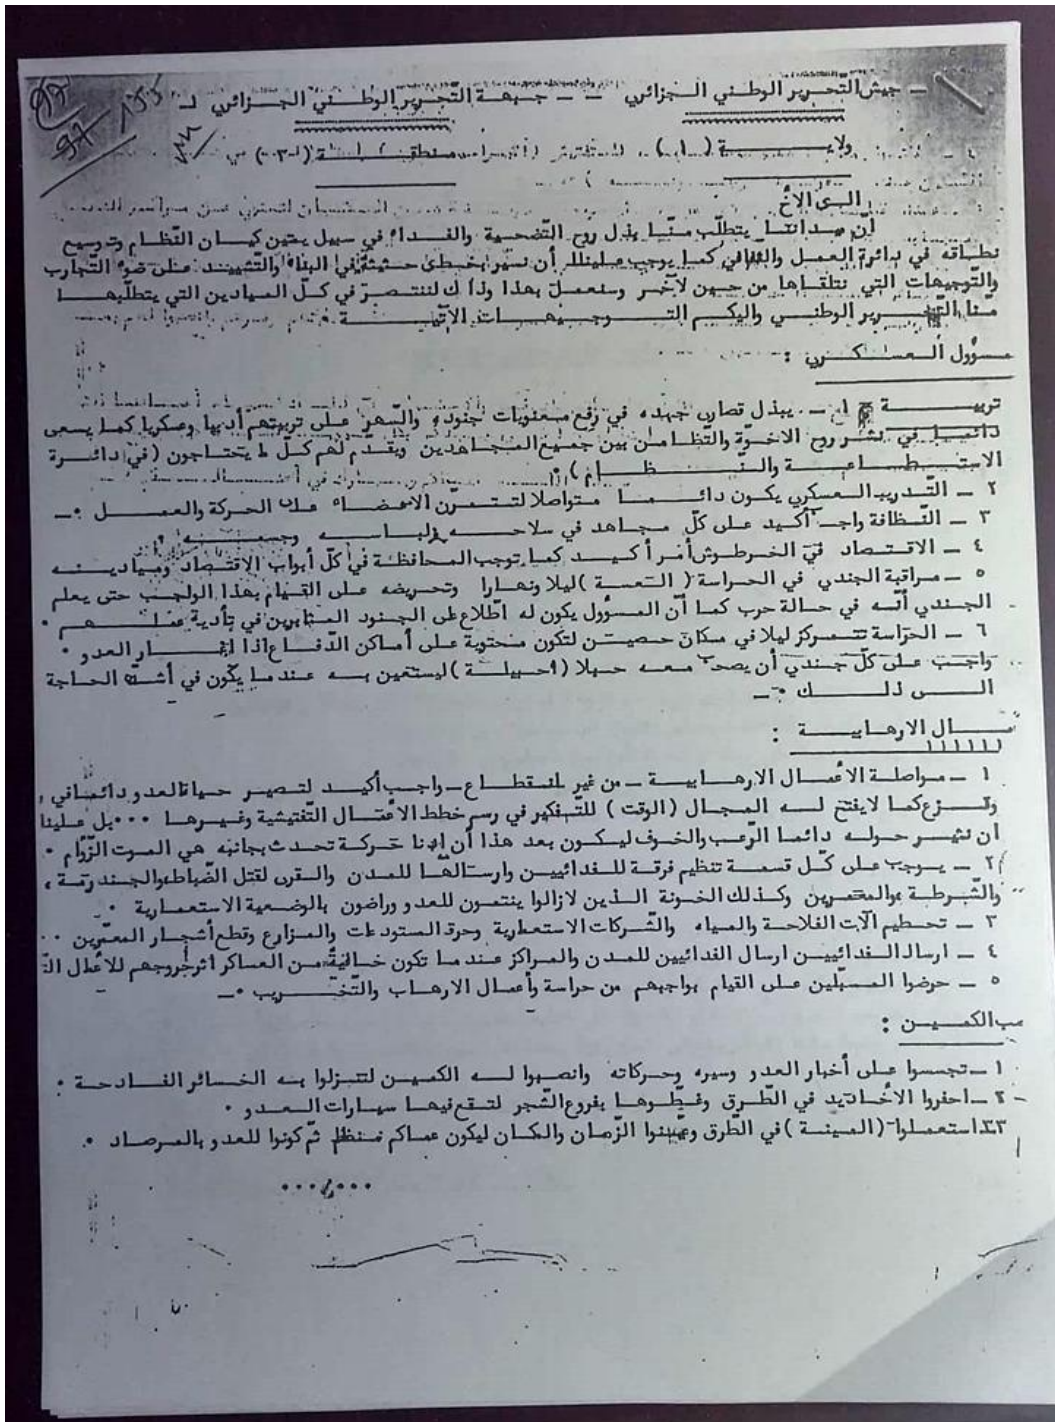 97
97 153
ـ جيش التّحرير الوطني الجزائري ـ ـ جبهة التّحرير الوطني الجزائري لـ
ولايــــة (١) منطقــــة (ـ٣ـ)
الـى الأخ
إنّ مبدأنا يتطلّب منّا بذل روح التّضحية والفداء في سبيل كيان النّظام وتوسيع
نطاقه في دائرة العمل كما يوجب علينا أن نسير بخطى حثيثة في البناء والتّشييد على ضوء التّجارب
والتّوجيهات التي نتلقاها من حين لآخر وسنعمل بهذا وذاك لننتصر في كلّ الميادين التي يتطلّبها
منّا التّحرير الوطني واليكم التــوجيهــات الآتيــة
مسؤول العسكري :
تربيــة ١ ـ يبذل قصارى جهده في رفع معنويات جنوده والسّهر على تربيتهم أدبيا وعسكريا كما يسعى
دائما في نشر روح الاخوّة والتّظامن بين جميع المجاهدين ويقدّم لهم كلّ ما يحتاجون (في دائرة
الاستطاعية والنّظام)
٢ ـ التّدريب العسكري يكون دائما متواصلا لتتمرّن الاعضاء على الحركة والعمل :ـ
٣ ـ النّظافة واجب أكيد على كلّ مجاهد في سلاحه ولباسه وجسمه .
٤ ـ الاقتصاد في الخرطوش أمر أكيد كما توجب المحافظة في كلّ أبواب الاقتصاد وميادينه
٥ ـ مراقبة الجندي في الحراسة (التعسة) ليلا ونهارا وتحريضه على القيام بهذا الواجب حتى يعلم
الجندي أنّه في حالة حرب كما أنّ المسؤول يكون له اطّلاع على الجنود المثابرين في تأدية عملهم .
٦ ـ الحرّاسة تتمركز ليلا في مكان حصين لتكون محتوية على أماكن الدّفاع اذا العدو .
واجب على كلّ جندي أن يصحب معه حبلا (احبيلة) ليستعين به عندما يكون في أشدّ الحاجة
الى ذلك :ـ
ـال الارهابيــة :
١ ـ مواصلة الأعمال الارهابية ـ من غير انقطاع ـ واجب أكيد لتصير حياة العدو دائما في
وفزع كما لا يفتح له المجال (الوقت) للتّفكير في رسم خطط الأعمال التّفتيشية وغيرها ... بل علينا
ان نثير حوله دائما الرّعب والخوف ليكون بعد هذا أن أدنا حركة تحدث بجانبه هي الموت الزّؤام .
٢ ـ يوجب على كلّ قسمة تنظيم فرقة للفدائيين وارسالها للمدن والقرى لقتل الضّباط والجندرمة ،
والشّرطة والمعمرين وكذلك الخونة الذين لازالوا ينتمون للعدو وراضون بالوضعية الاستعمارية .
٣ ـ تحطيم آلات الفلاحة والمياه والشّركات الاستعمارية وحرق المستودعات والمزارع وقطع أشجار المعمّرين ..
٤ ـ ارسال الفدائيين ارسال الفدائيين للمدن والمراكز عندما تكون خالية من العساكر اثر خروجهم للأعمال
٥ ـ حرضوا المسبّلين على القيام بواجبهم من حراسة وأعمال الارهاب والتّخريب .ـ
ـب الكميــن :
١ ـ تجسسوا على أخبار العدو وسيره وحركاته وانصبوا له الكمين لتنزلوا به الخسائر الفادحة :
ـ ٢ ـ احفروا الأخاديد في الطّرق وغطّوها بفروع الشّجر لتقع فيها سيارات العدو .
٣ـ استعملوا (المينة) في الطّرق وعيّنوا الزّمان والمكان ليكون عملكم منظم ثمّ كونوا للعدو بالمرصاد .